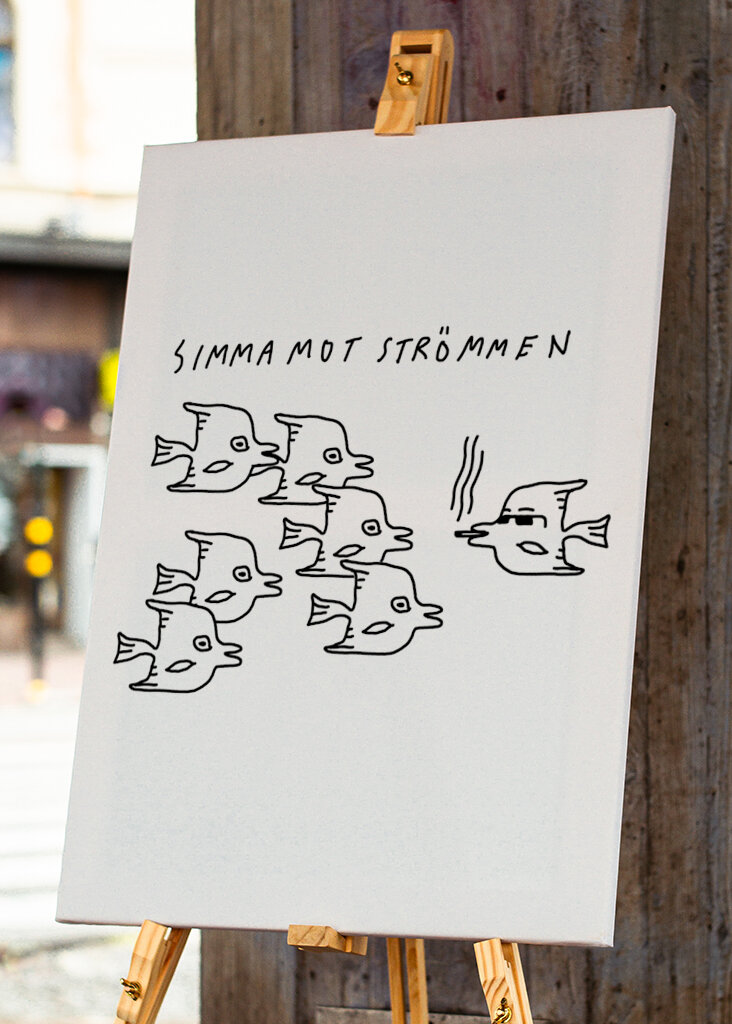 SIMMA MOT STRÖMMEN